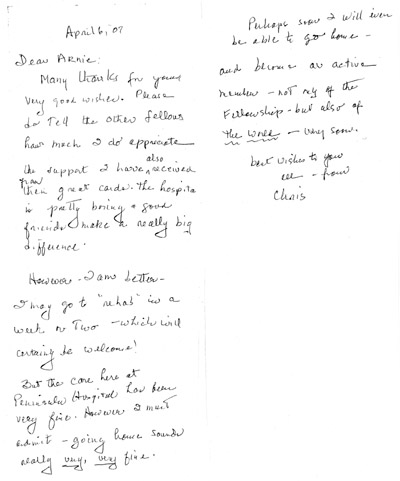 April 6, 07
Dear Arnie:
Many thanks for your
very good wishes. Please
do Tell the other fellows
how much I do appreciate
also
the support I have received
from
their great cards. The hospital
is pretty boring & good
friends make a really big
difference.
However - I am better -
I may go to "rehab" in a
week or Two - which will
certainly be welcome!
But the care here at
Peninsula Hospital has been
very fine. However I must
admit - going home sounds
really very, very fine.
Perhaps soon I will even
be able to go home -
and become an active
member - not only of the
Fellowship - but also of
the - very soon.
best wishes to you
all - from
Chris